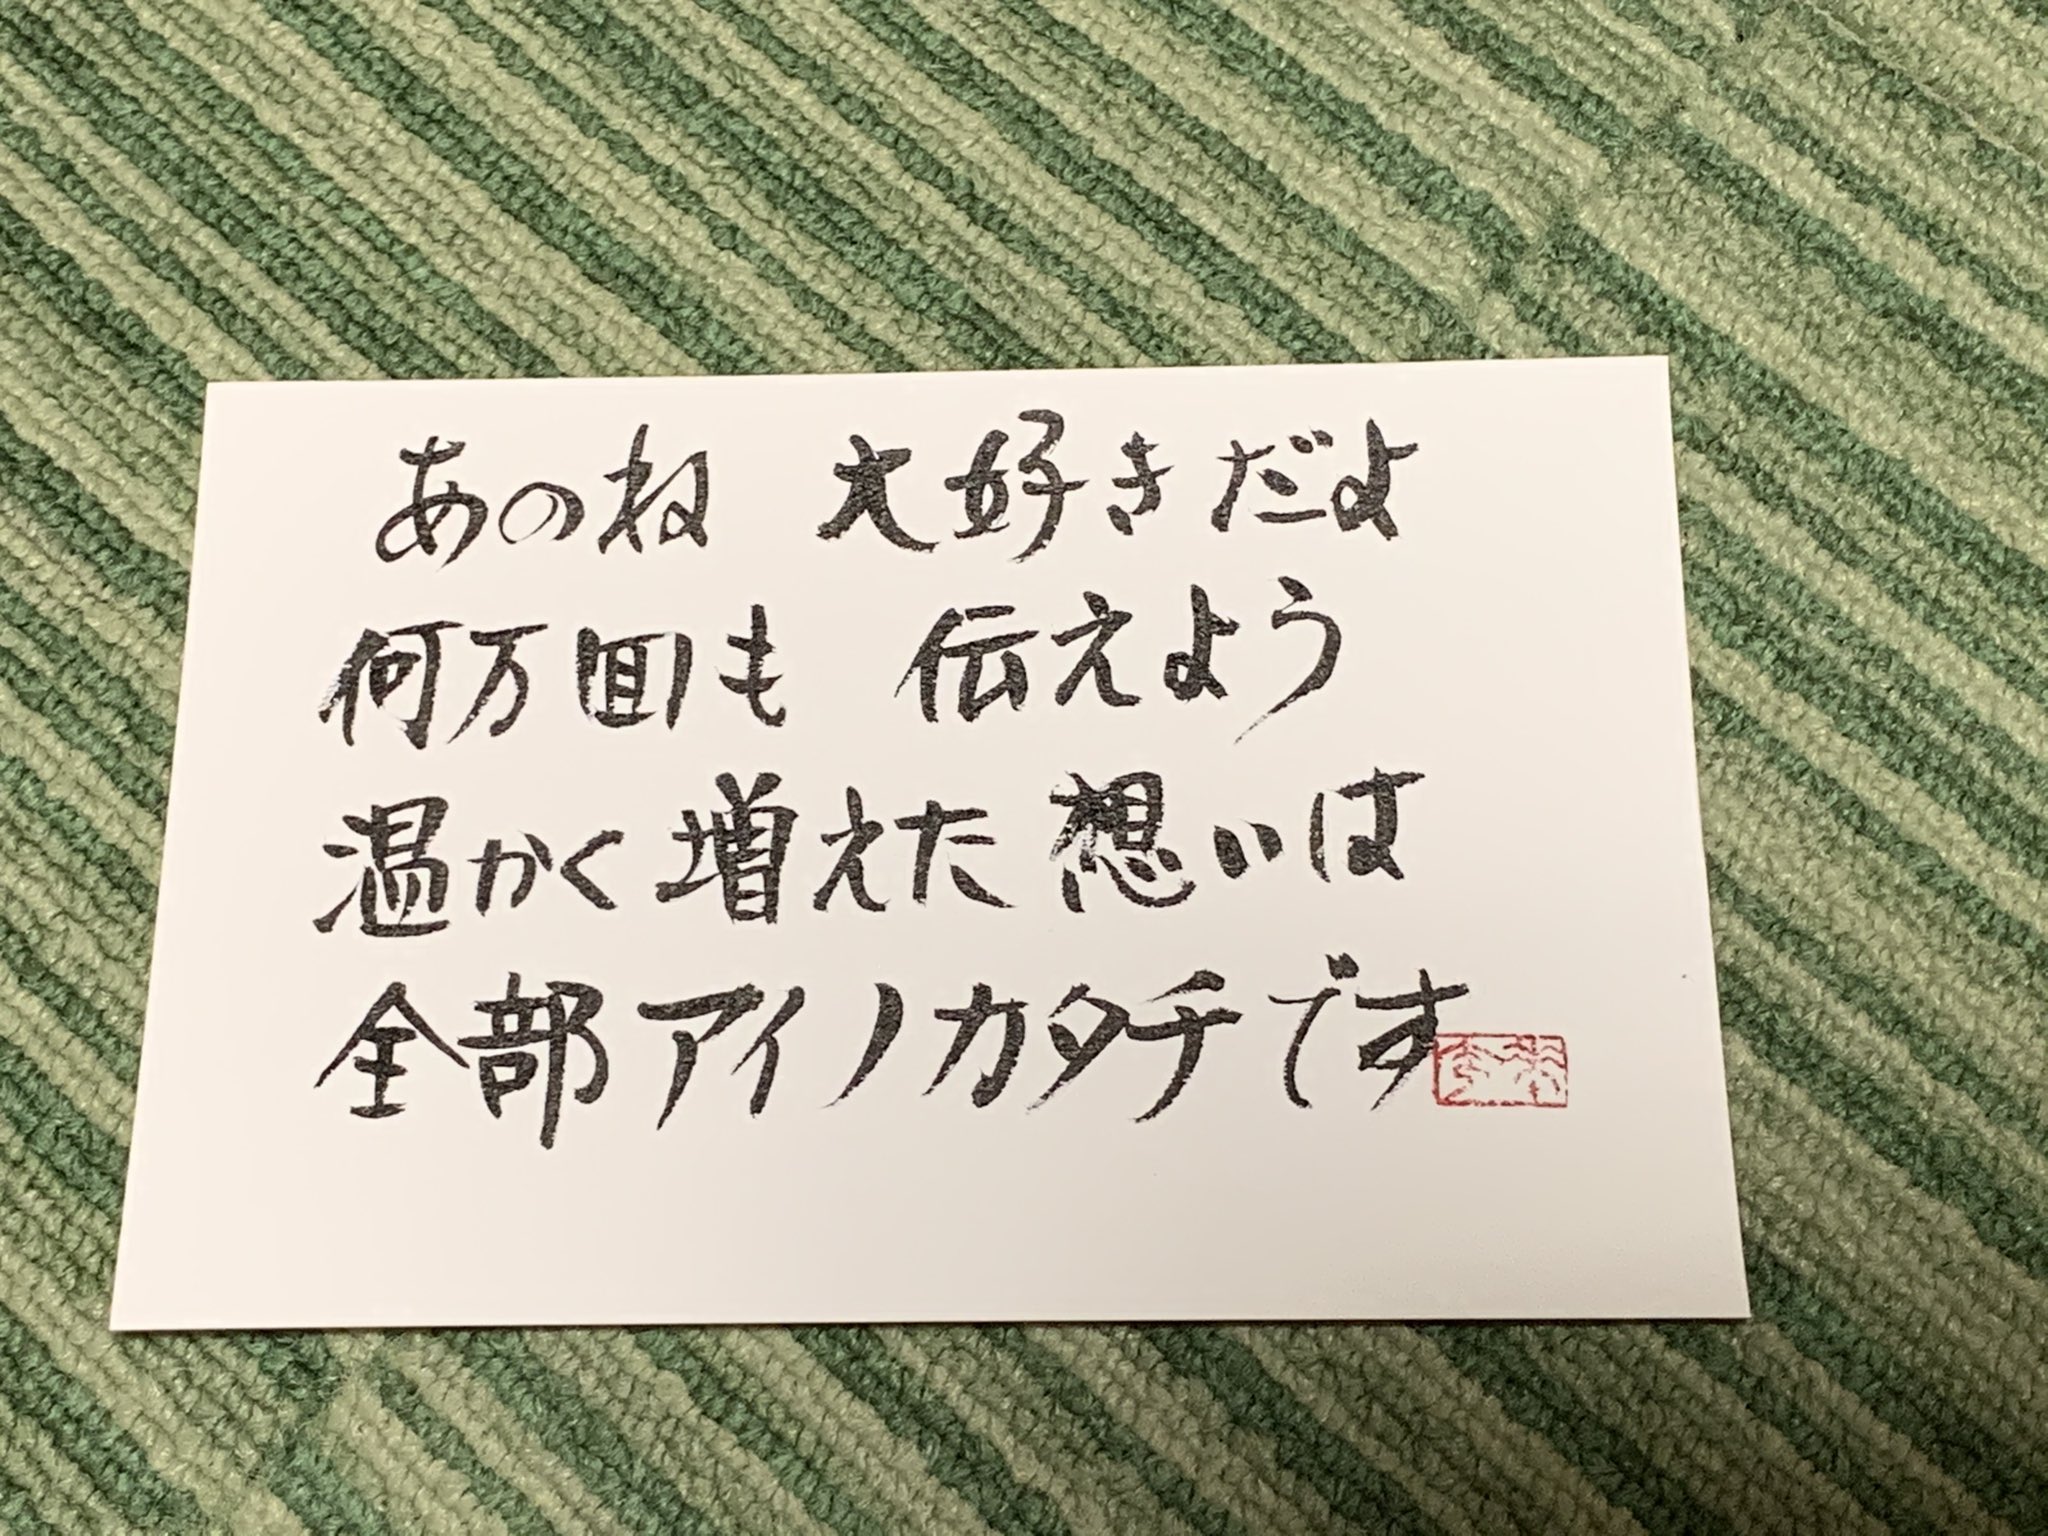 あのね 大好きだよ
何万回も 伝えよう
温かく増えた想いは
全部アイノカタチです